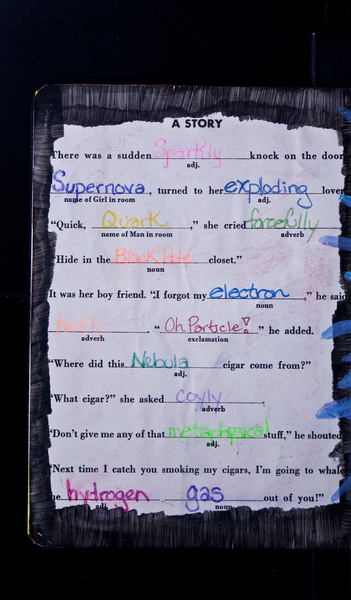 A STORY
There was a sudden Sparkly knock on the door
adj.
Supernova, turned to her exploding lover
name of Girl in room adj.
"Quick, Quark," she cried forcefully
name of Man in room adverb
"Hide in the Black Hole closet."
noun
It was her boy friend. "I forgot my electron," he said
noun
hotly. "Oh Particle!" he added.
adverb exclamation
"Where did this Nebula cigar come from?"
adj.
"What cigar?" she asked coyly.
adverb
"Don't give me any of that metaphysical stuff," he shouted
adj.
"Next time I catch you smoking my cigars, I'm going to whale
he hydrogen gas out of you!"
adj. noun